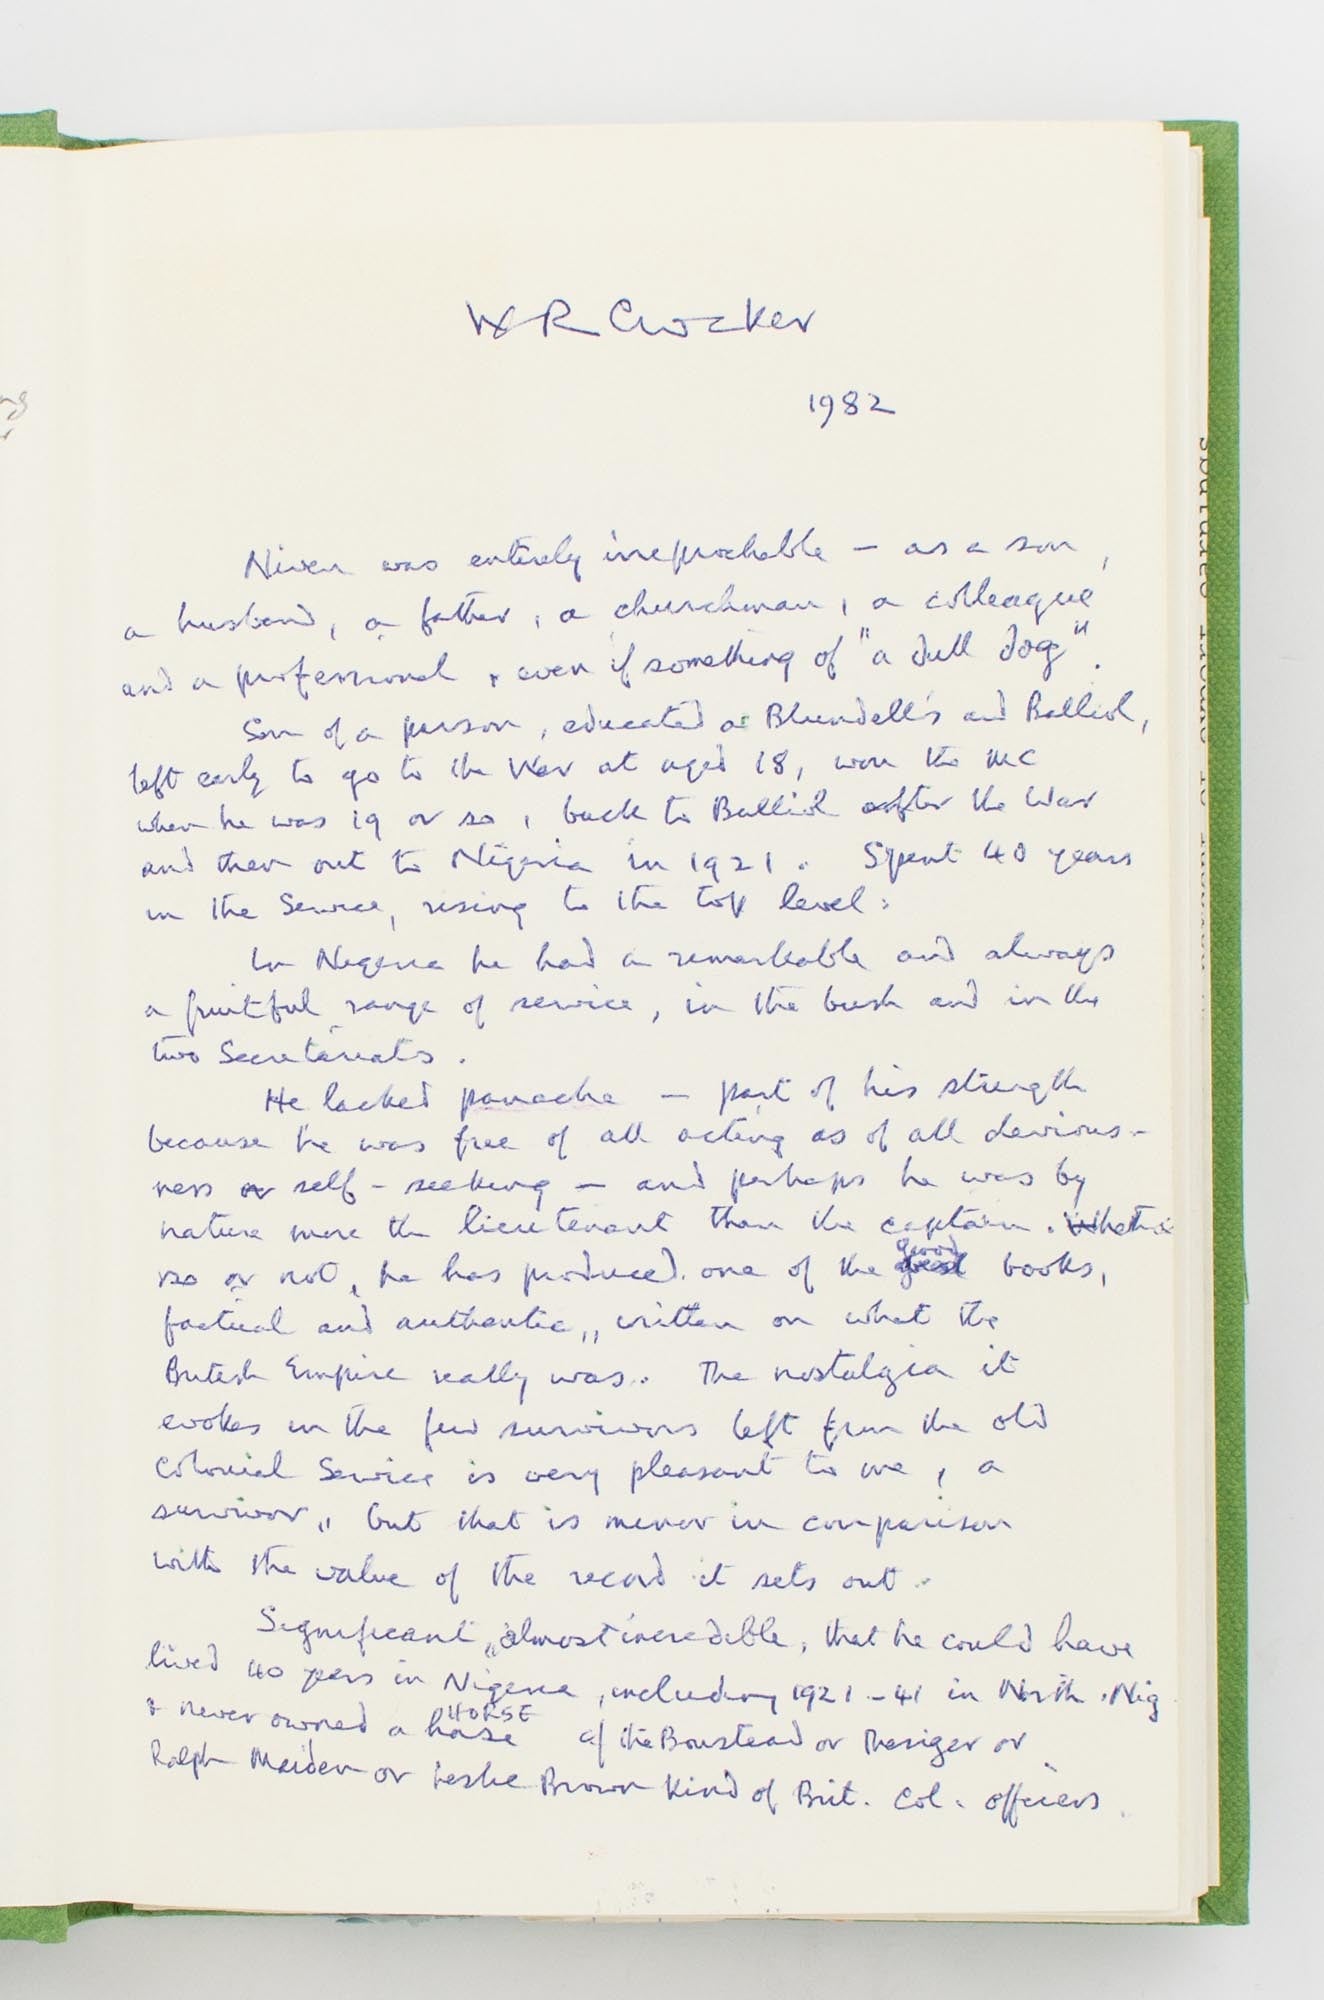 W R Crocker
1982
Niven was entirely irreproachable – as a son,
a husband, a father, a churchman, a colleague
and a professional, even if something of "a dull dog".
Son of a parson, educated at Blundell's and Balliol,
left early to go to the War at aged 18, won the MC
when he was 19 or so, back to Balliol after the War
and then out to Nigeria in 1921. Spent 40 years
in the Service, rising to the top level.
In Nigeria he had a remarkable and always
a fruitful range of service, in the bush and in the
two Secretariats.
He lacked panache – part of his strength
because he was free of all acting as of all devious-
ness or self-seeking – and perhaps he was by
nature more the lieutenant than the captain. Whether
so or not, he has produced one of the good books,
factual and authentic, written on what the
British Empire really was. The nostalgia it
evokes in the few survivors left from the old
Colonial Service is very pleasant to me, a
survivor, but that is minor in comparison
with the value of the record it sets out.
Significant, almost incredible, that he could have
lived 40 years in Nigeria, including 1921-41 in North. Nig
& never owned a horse HORSE cf the Boustead or Thesiger or
Ralph Maiden or Leslie Brown kind of Brit. Col. officers.
export earnings